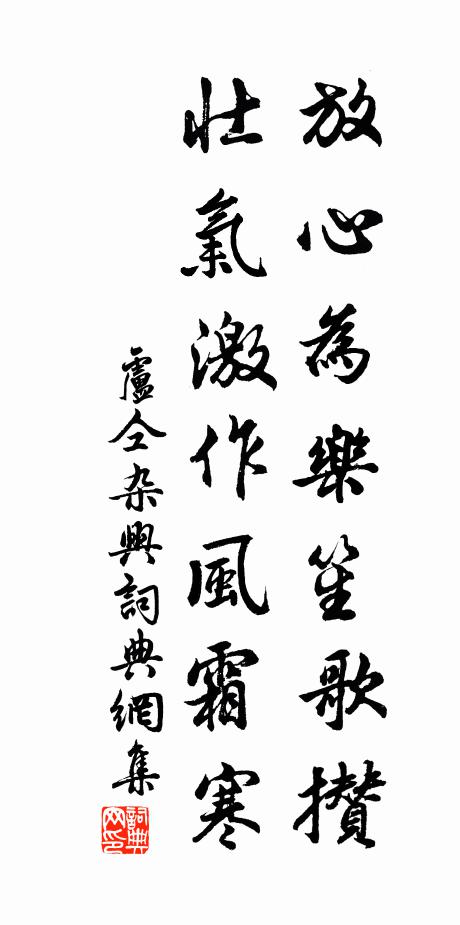 放心為樂笙歌攢
壯氣激作風霜寒
盧仝杂興詞典網集
詞典网印